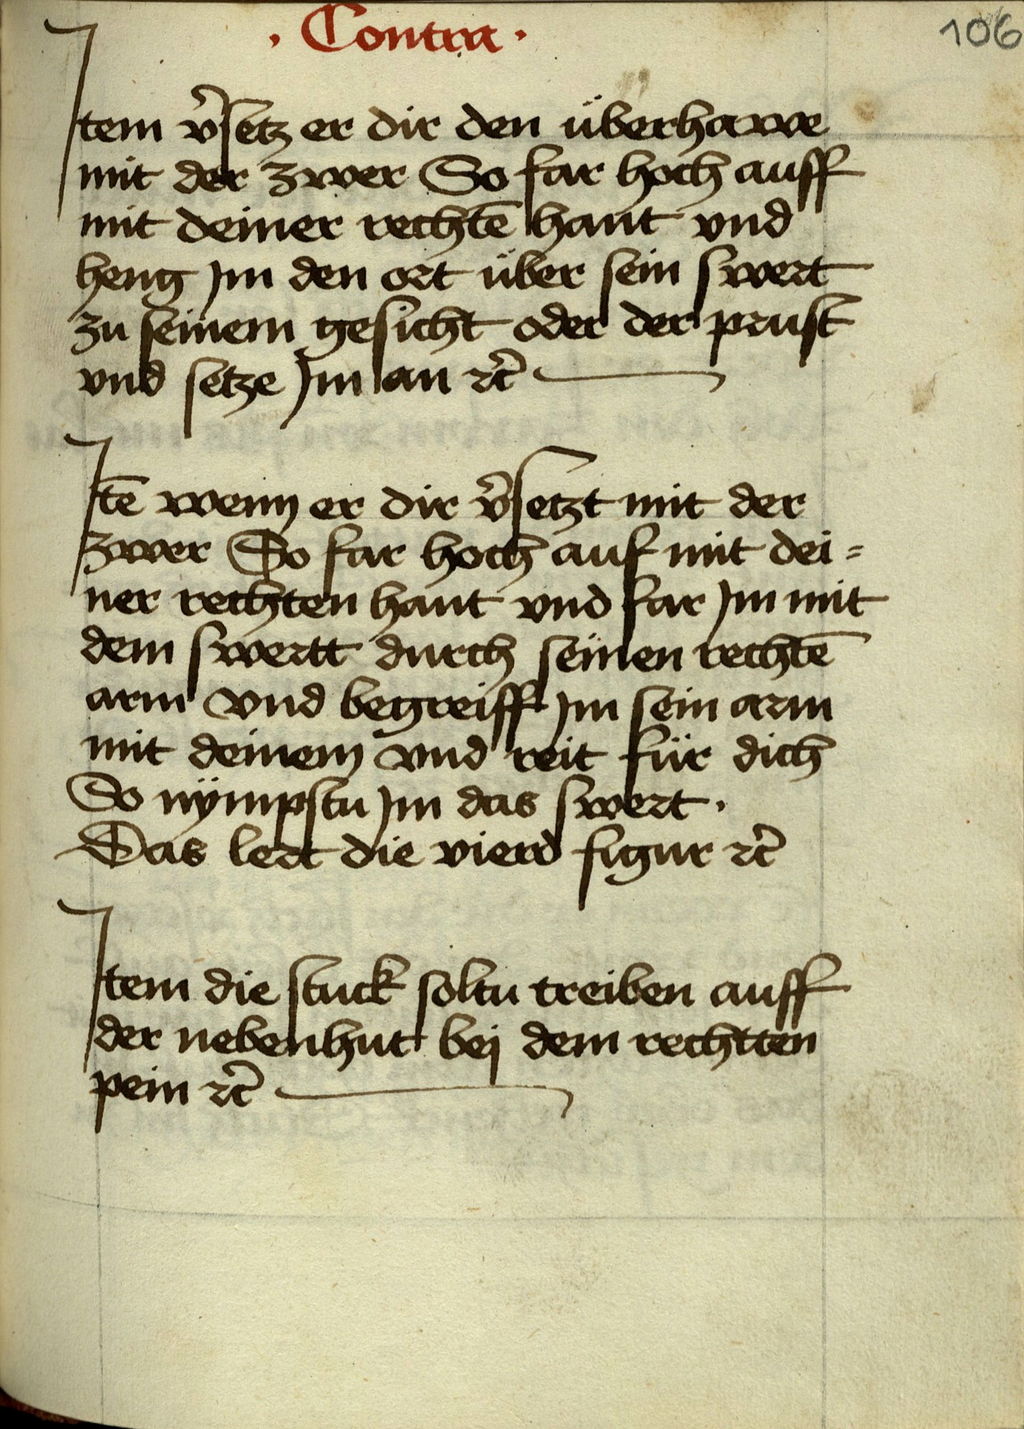 · Contra ·
106
Item v̾setz er dir den überhawe
mit der zwer So far hoch auff
mit deiner rechtē hant vnd
heng Jm den ort über sein swert
zu seinem gesicht oder der prust
vnd setze Jm an ꝛc̄
Itē wenn er dir v̾setzt mit der
zwer So far hoch auf mit dei=
ner rechten hant vnd far Jm mit
dem swertt durch seinen rechtē
arm vnd begreiff Jm sein arm
mit deinem vnd reit für dich
So nÿmpstu Jm das swert ·
Das lert die vierd figur ꝛc̄
Item die stuck soltu treiben auff
der nebenhut bej dem rechtten
pein ꝛc̄